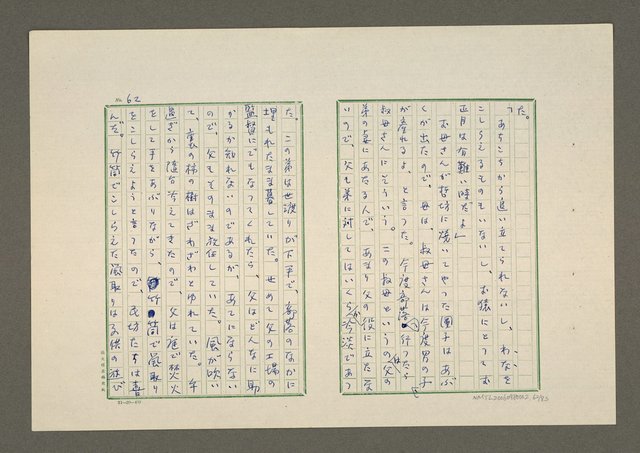 た。
あちこちから追い立てられないし、わなを
こしらえるものもいないし、お猿にとつてお
正月は有難い時だよ」
お母さんが哲坊に焼いてやつた団子はあぶ
くが出たので、母は、叔母さんは今度男の子
が産れるよ、と言つた。今度部落へ行つたら
叔母さんにそういう。この叔母というのは父の
弟の妻にあたる人で、あまり父の役に立たな
いので、父も弟に対してはいくらか冷淡であつ
No. 62
た。この弟は世渡りが下手で、部落のなかに
埋もれたまま暮していた。せめて父の工場の
監督にでもなつてくれたら、父はどんなに助
かるか知れないのであるが、あてにならない
ので、父もそのまま放任していた。風が吹い
て、裏の柿の樹はざわざわとゆれていた。午
過ぎから陰冷えてきたので、父は庭で焚火
をして手をあぶりながら、竹筒で鼠取り
をこしらえようと言つたので、民坊たちは喜
んだ。竹筒でこしらえた鼠取りは子供の遊び